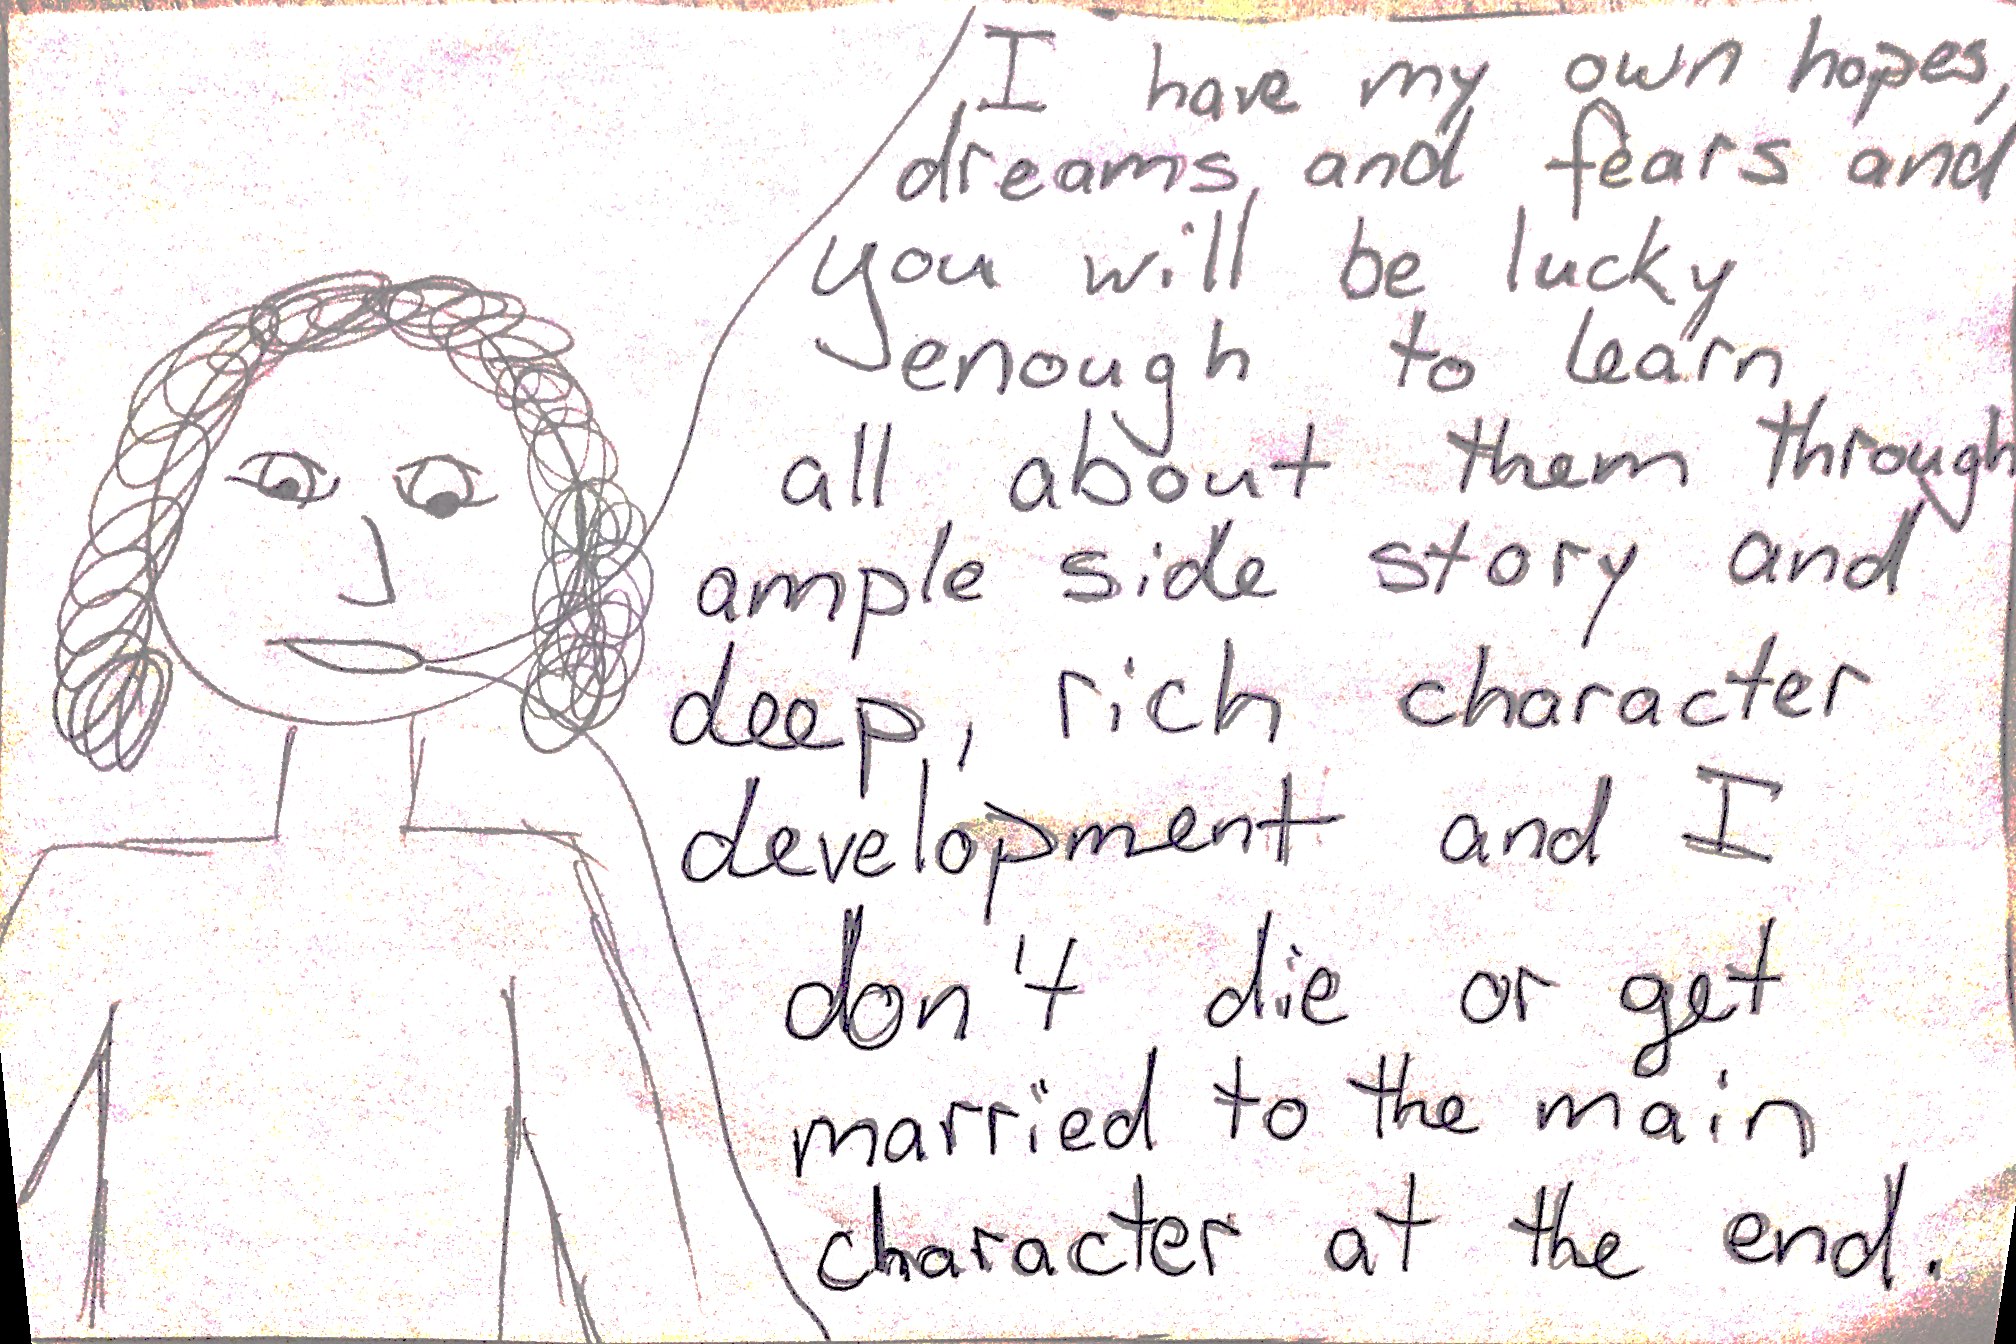 I have my own hopes,
dreams, and fears and
you will be lucky
enough to learn
all about them through
ample side story and
deep, rich character
development and I
don't die or get
married to the main
character at the end.